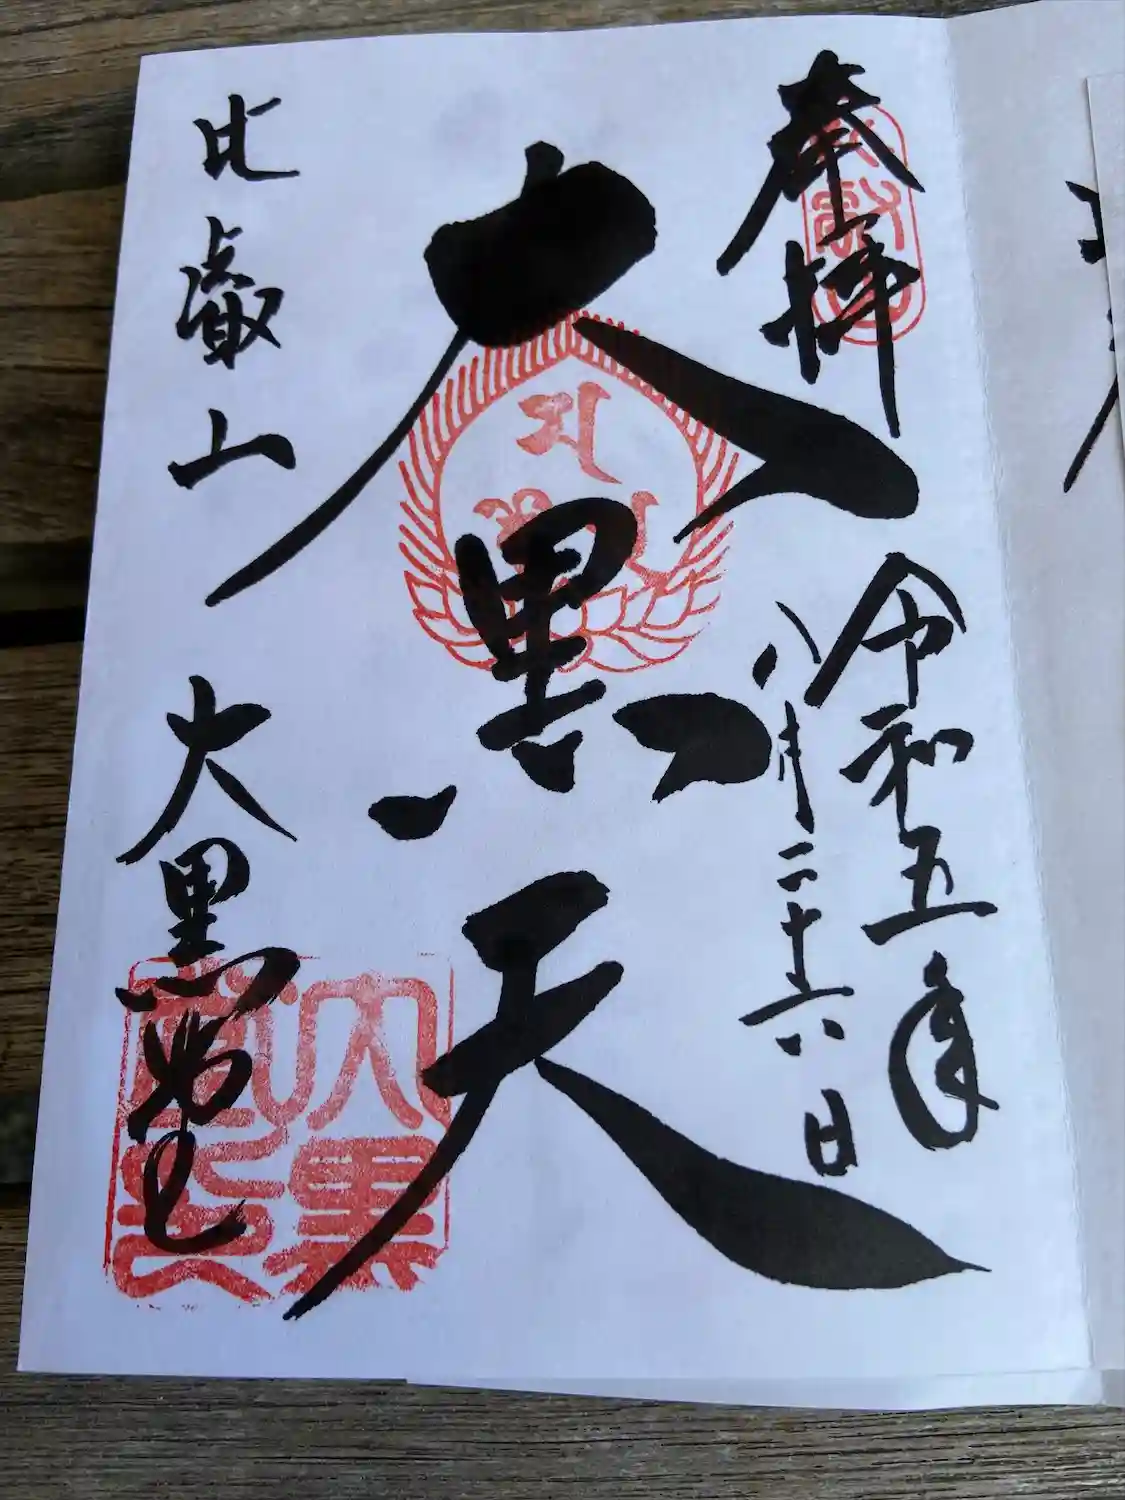 奉拝
令和五年
八月二十六日
大黒天
比叡山
大黒堂